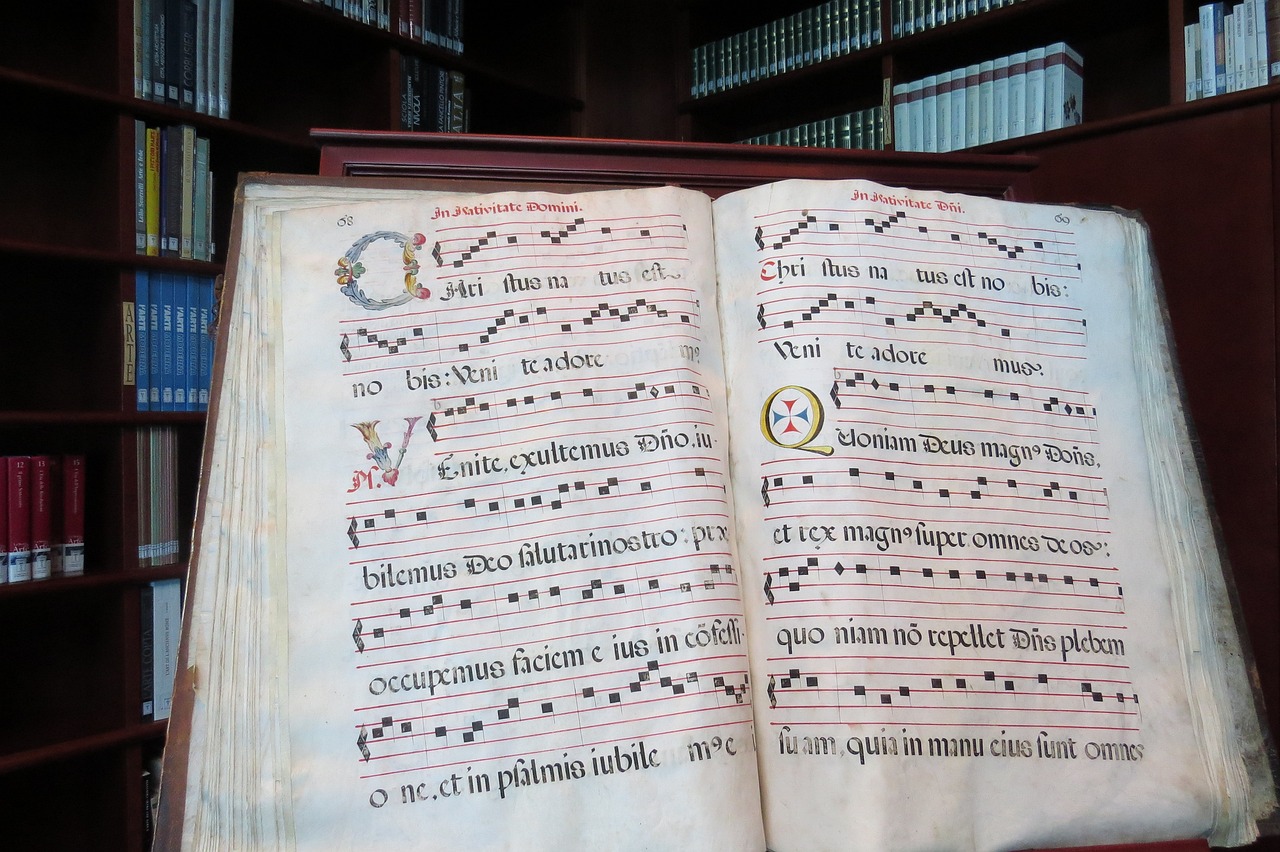 68
In Nativitate Domini.
CHri stus na tus est
no bis: Veni te adore m9
Ps.
VEnite, exultemus Dño, iu-
bilemus Deo salutari nostro: præ
occupemus faciem e ius in cõfessi-
o ne, et in psalmis iubile m9 e
In Nativitate Dñi.
Chri stus na tus est no bis:
Veni te adore mus.
Quoniam Deus magn9 Doñs,
et rex magn9 super omnes deos:
quo niam nõ repellet Dñs plebem
su am, quia in manu eius sunt omnes
ARTE
L'ARTE
L'ARTE
L'ARTE
L'ARTE
L'ARTE
12
13
15